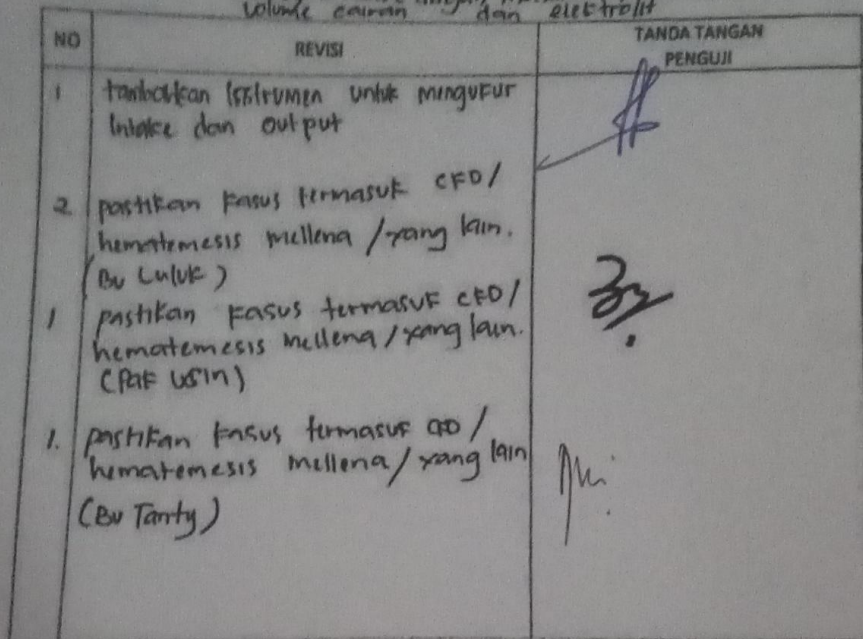 volume cairan dan elektrolit
NO
REVISI
TANDA TANGAN
PENGUJI
1 tambahkan Instrumen untuk mengukur
Intake dan output
2 pastikan kasus termasuk CKD/
hematemesis mellena/yang lain.
(Bu Luluk)
1 pastikan kasus termasuk CKD/
hematemesis mellena/yang lain.
(Pak Usin)
1. pastikan kasus termasuk CKD/
hematemesis mellena/yang lain
(Bu Tanty)